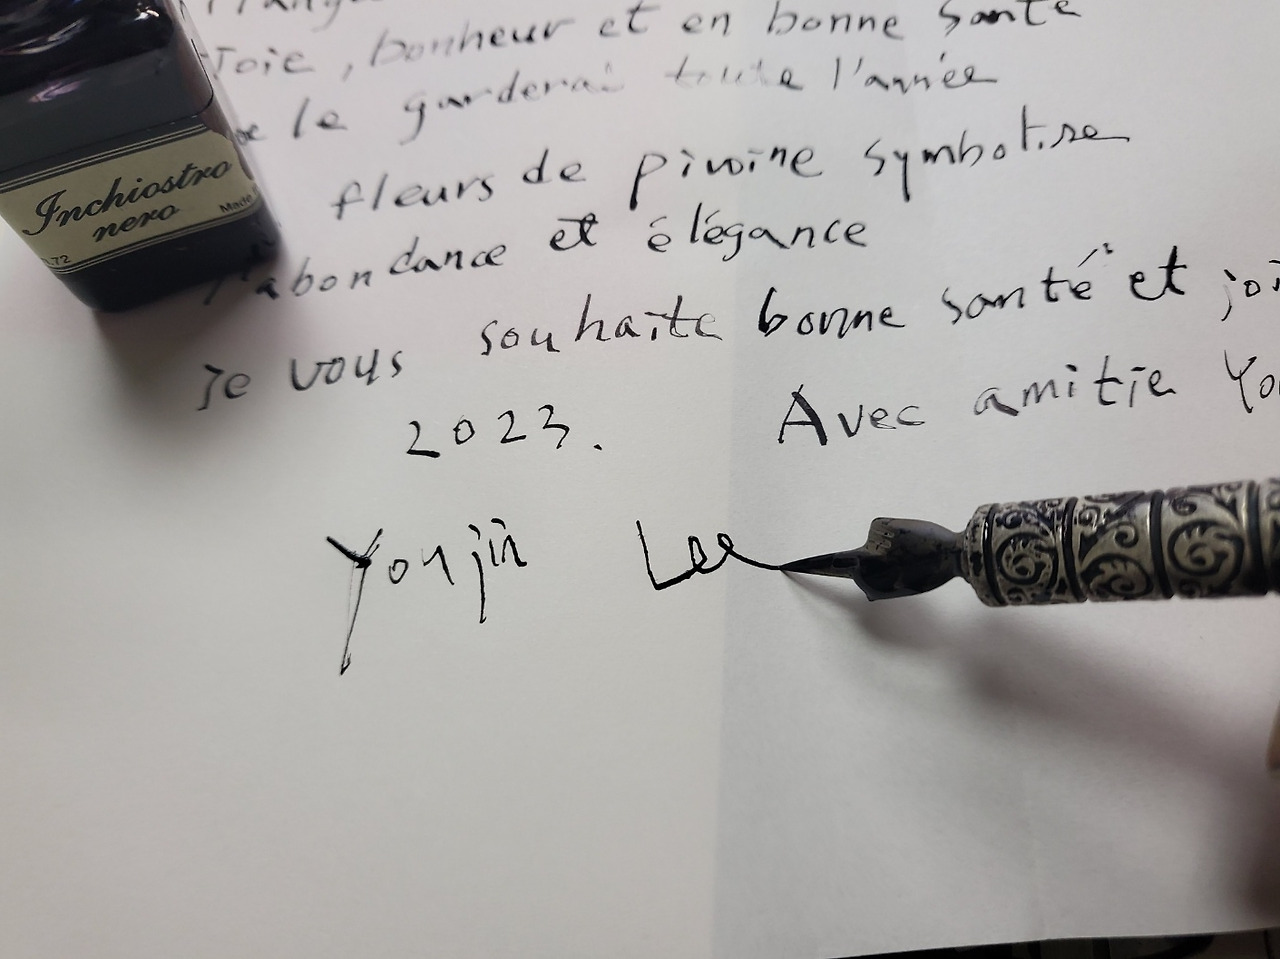 Joie, bonheur et en bonne santé
le garderai toute l'année
fleurs de pivoine symbolise
l'abondance et élégance
je vous souhaite bonne santé et joi
2023. Avec amitie You
Youjin Lee
Inchiostro
nero
Made